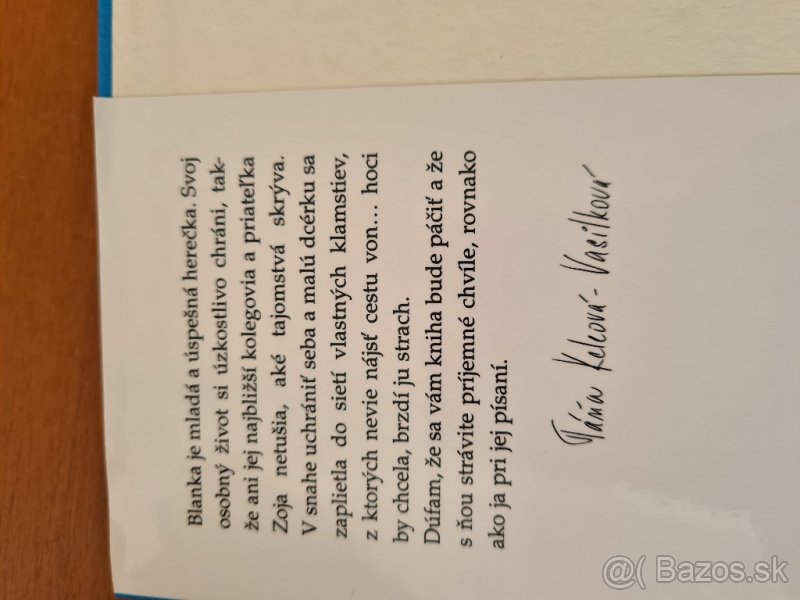 Blanka je mladá a úspešná herečka. Svoj
osobný život si úzkostlivo chráni, tak-
že ani jej najbližší kolegovia a priateľka
Zoja netušia, aké tajomstvá skrýva.
V snahe uchrániť seba a malú dcérku sa
zaplietla do sietí vlastných klamstiev,
z ktorých nevie nájsť cestu von... hoci
by chcela, brzdí ju strach.
Dúfam, že sa vám kniha bude páčiť a že
s ňou strávite príjemné chvíle, rovnako
ako ja pri jej písaní.
Táňa Keleová-Vasilková
@( Bazos.sk